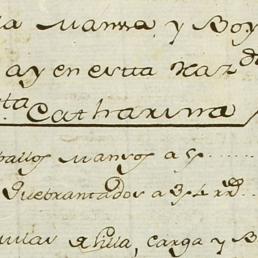 la Manza y Boy
ay en esta Haz.da
ta Catharina
ballos Manzos a
Quebrantados a
mulas de silla, carga y